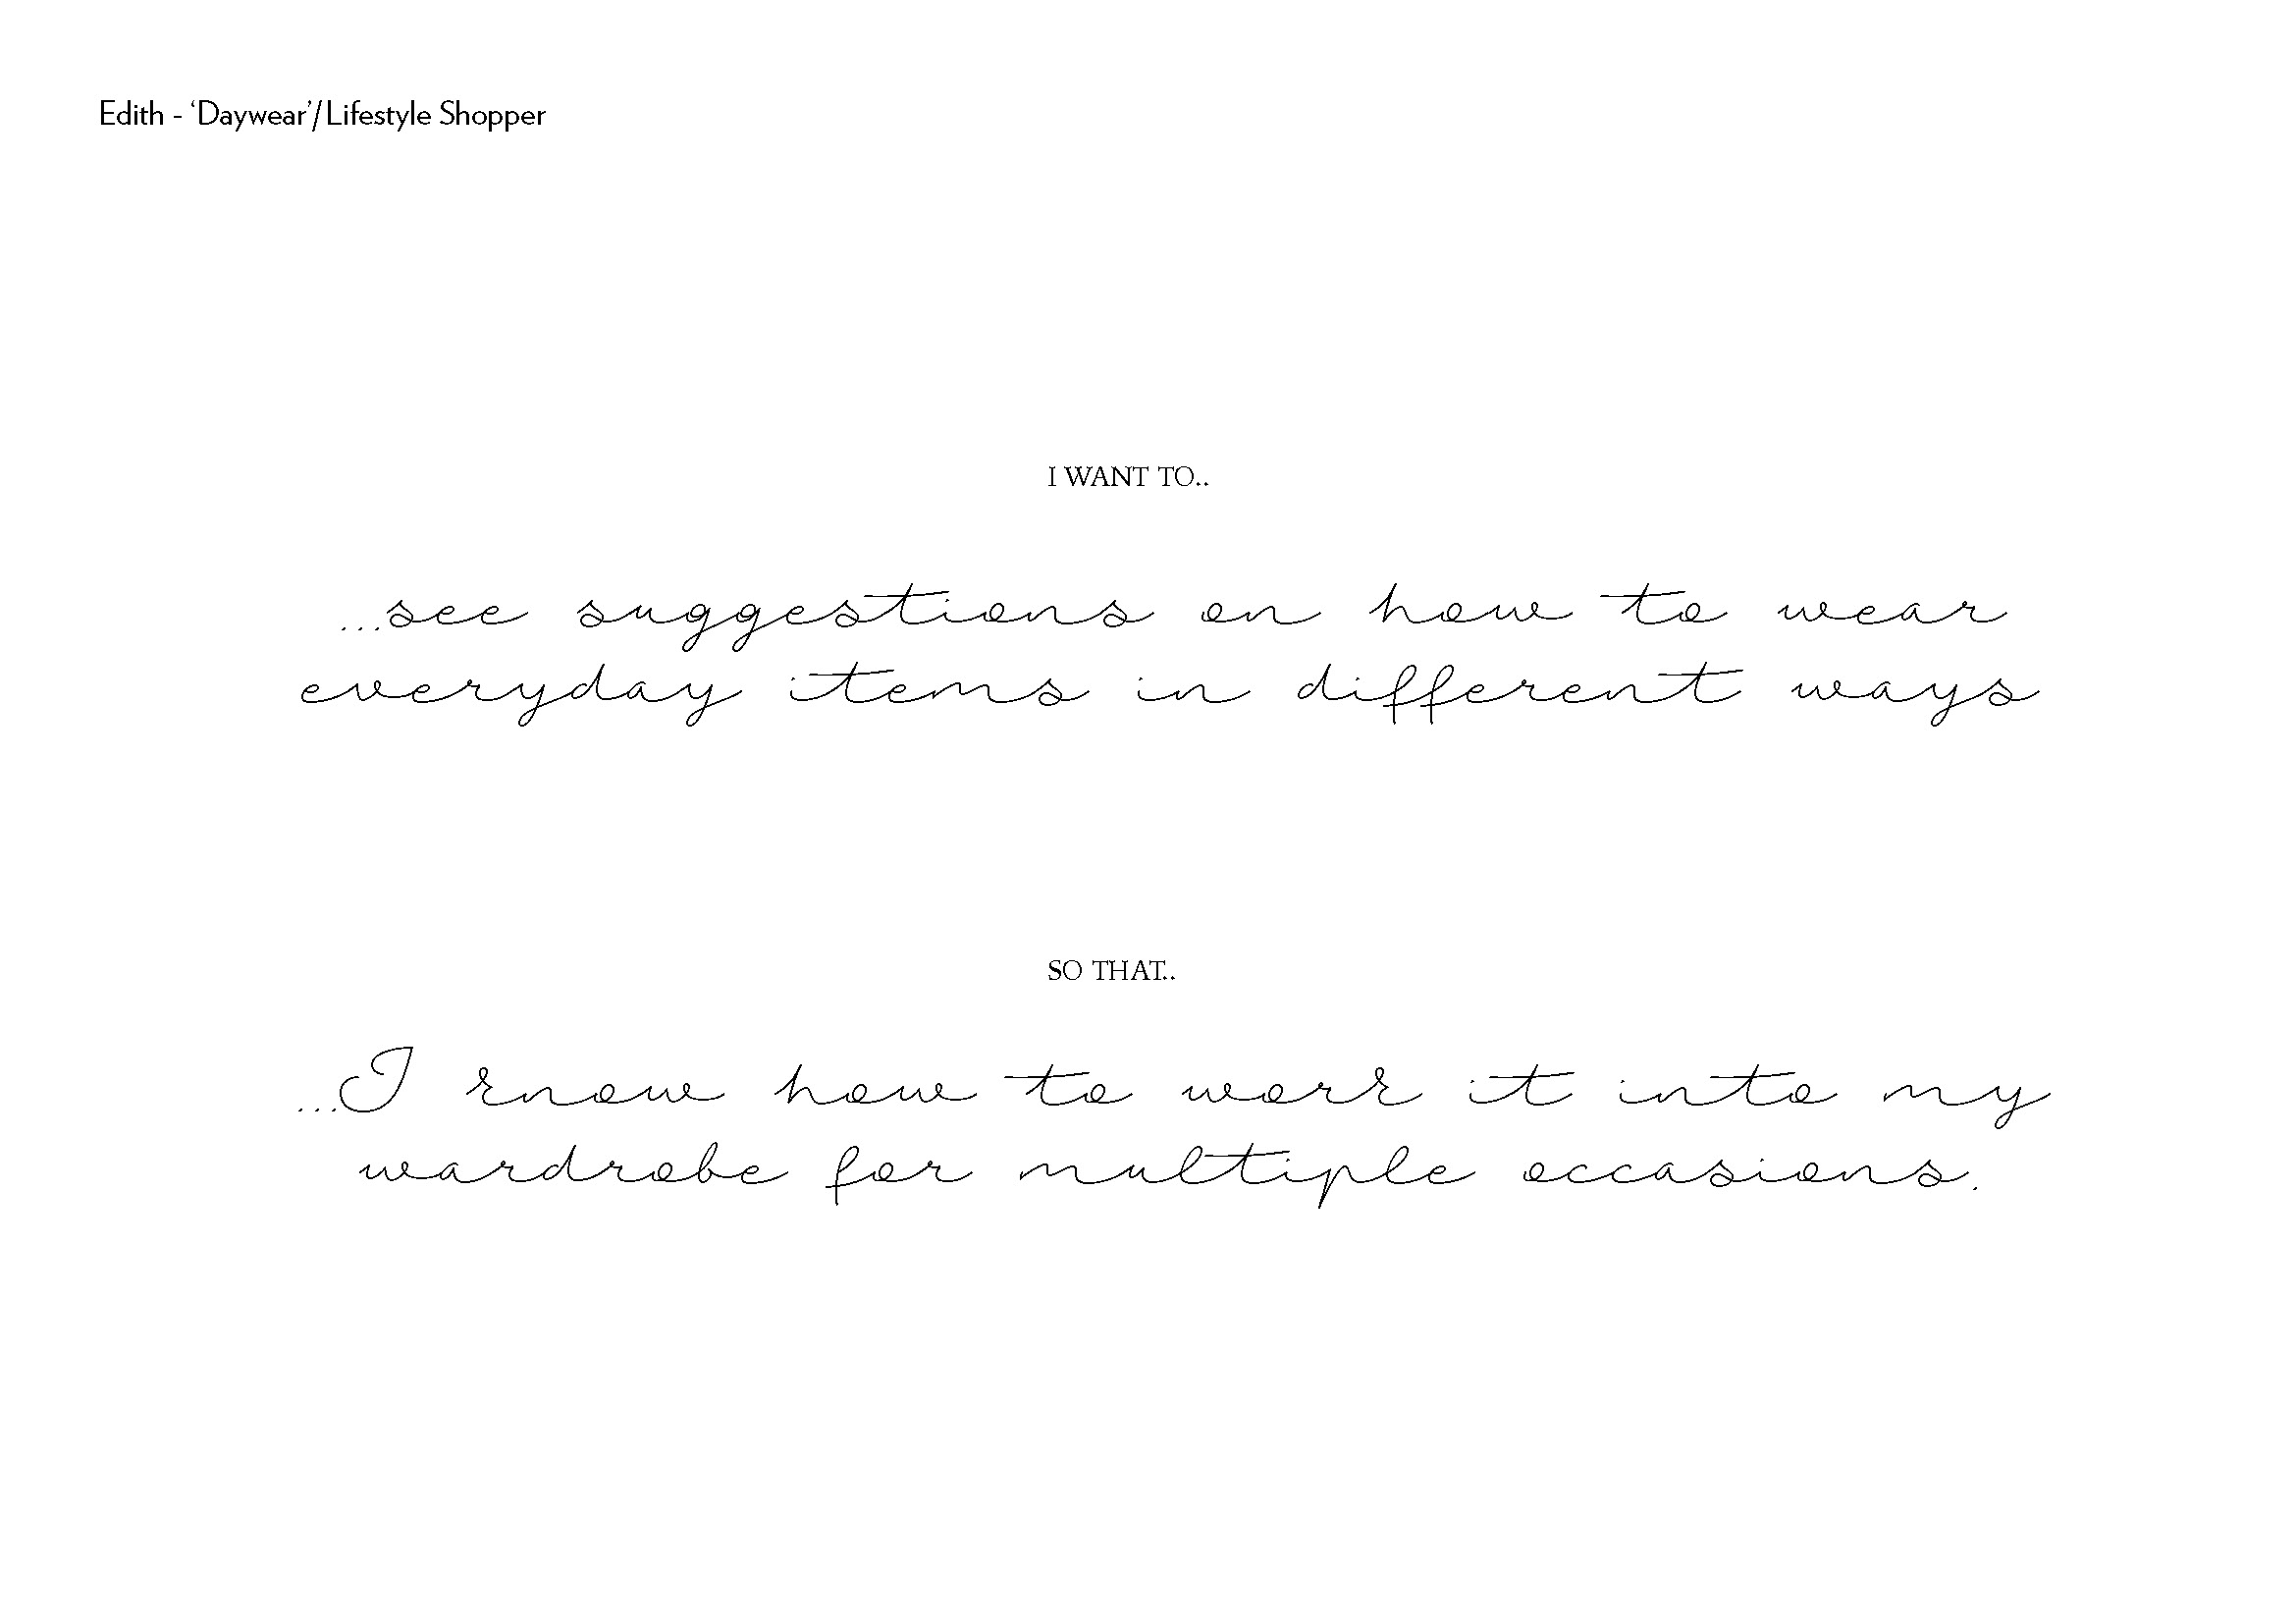 Edith - ‘Daywear’/Lifestyle Shopper
I WANT TO..
...see suggestions on how to wear
everyday items in different ways
SO THAT..
...I know how to work it into my
wardrobe for multiple occasions.